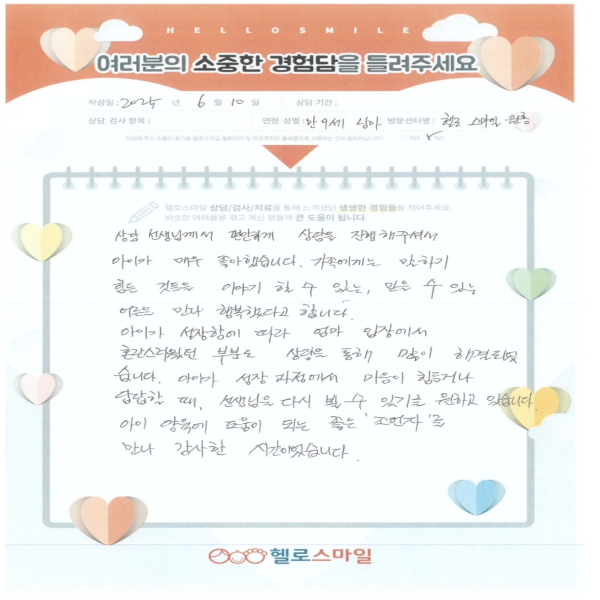 HELLOSMILE
여러분의 소중한 경험담을 들려주세요
작성일 : 2025 년 6 월 10 일 상담 기간 :
상담·검사 항목 : 연령·성별 : 만 9세 남아 방문센터명 : 헬로 스마일 원흥
YES NO
헬로스마일 상담/검사/치료를 통해 느끼셨던 생생한 경험들을 적어주세요.
비슷한 어려움을 겪고 계신 분들께 큰 도움이 됩니다.
상담 선생님께서 편안하게 상담을 진행해주셔서
아이가 매우 좋아했습니다. 가족에게는 말하기
힘든 것들을 이야기 할 수 있는, 믿을 수 있는
어른을 만나 행복했다고 합니다.
아이가 성장함에 따라 엄마 입장에서
혼란스러웠던 부분도 상담을 통해 많이 해결되었
습니다. 아이가 성장 과정에서 마음이 힘들거나
답답할 때, 선생님을 다시 뵐 수 있기를 원하고 있습니다.
아이 양육에 도움이 되는 좋은 '조언자'를
만나 감사한 시간이었습니다.
헬로스마일